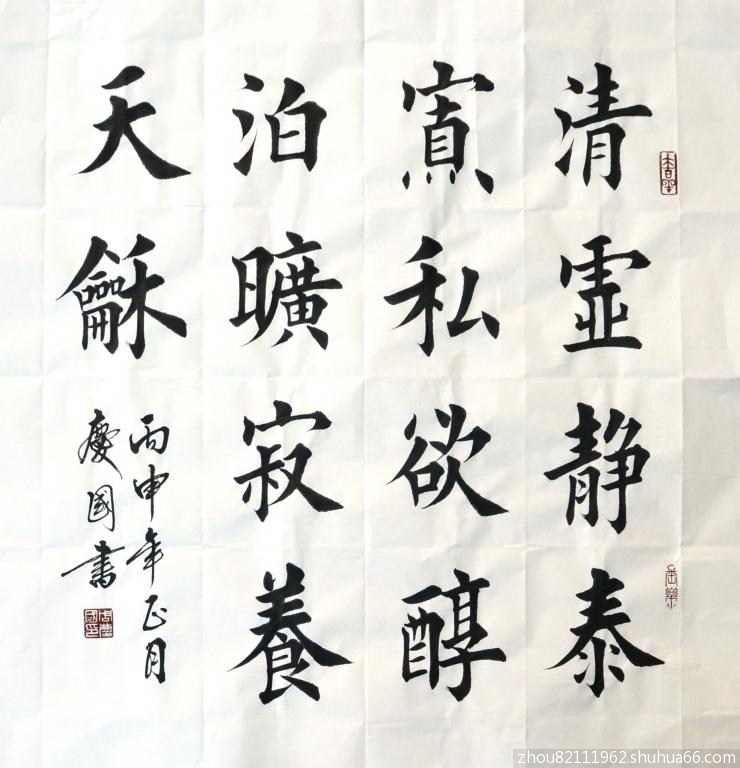 大吉羊
清虚静泰
寡私欲醇
泊曠寂養
天龢
丙申年正月
慶國書
周慶國印
zhou82111962.shuhua66.com